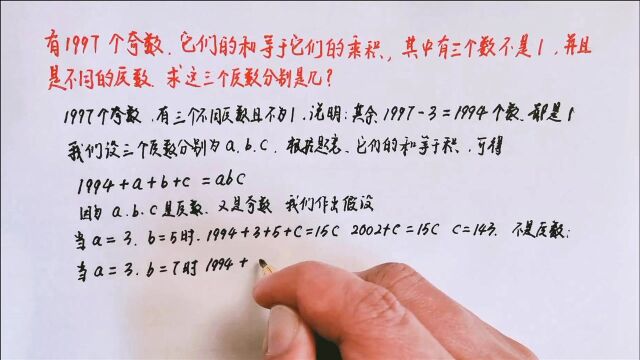 有1997个奇数.它们的和等于它们的乘积,其中有三个数不是1,并且
是不同的质数.求这三个质数分别是几?
1997个奇数.有三个不同质数且不为1.说明:其余1997-3=1994个数.都是1
我们设三个质数分别为a.b.c.根据题意.它们的和等于积.可得
1994+a+b+c=abc
因为a.b.c是质数.又是奇数 我们作出假设
当a=3.b=5时.1994+3+5+c=15c 2002+c=15c c=143.不是质数;
当a=3.b=7时 1994+